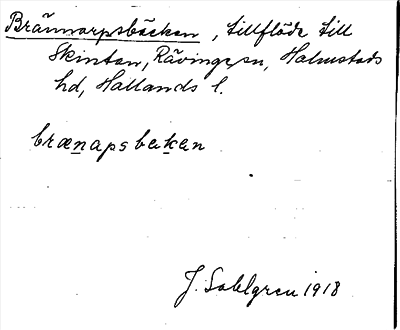 Brännarpsbäcken, tillflöde till
Skintan, Rävinge sn, Halmstads
hd, Hallands l.
brænapsbækan
J. Sahlgren 1918